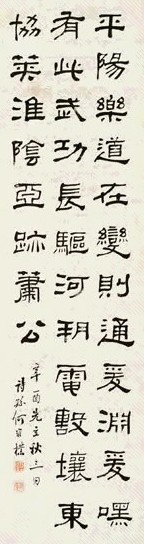 平陽樂道在變則通爰淵爰嘿
有此武功長驅河朔電擊壤東
協策淮陰亞跡蕭公
辛酉先立秋三日
詩孫何維樸